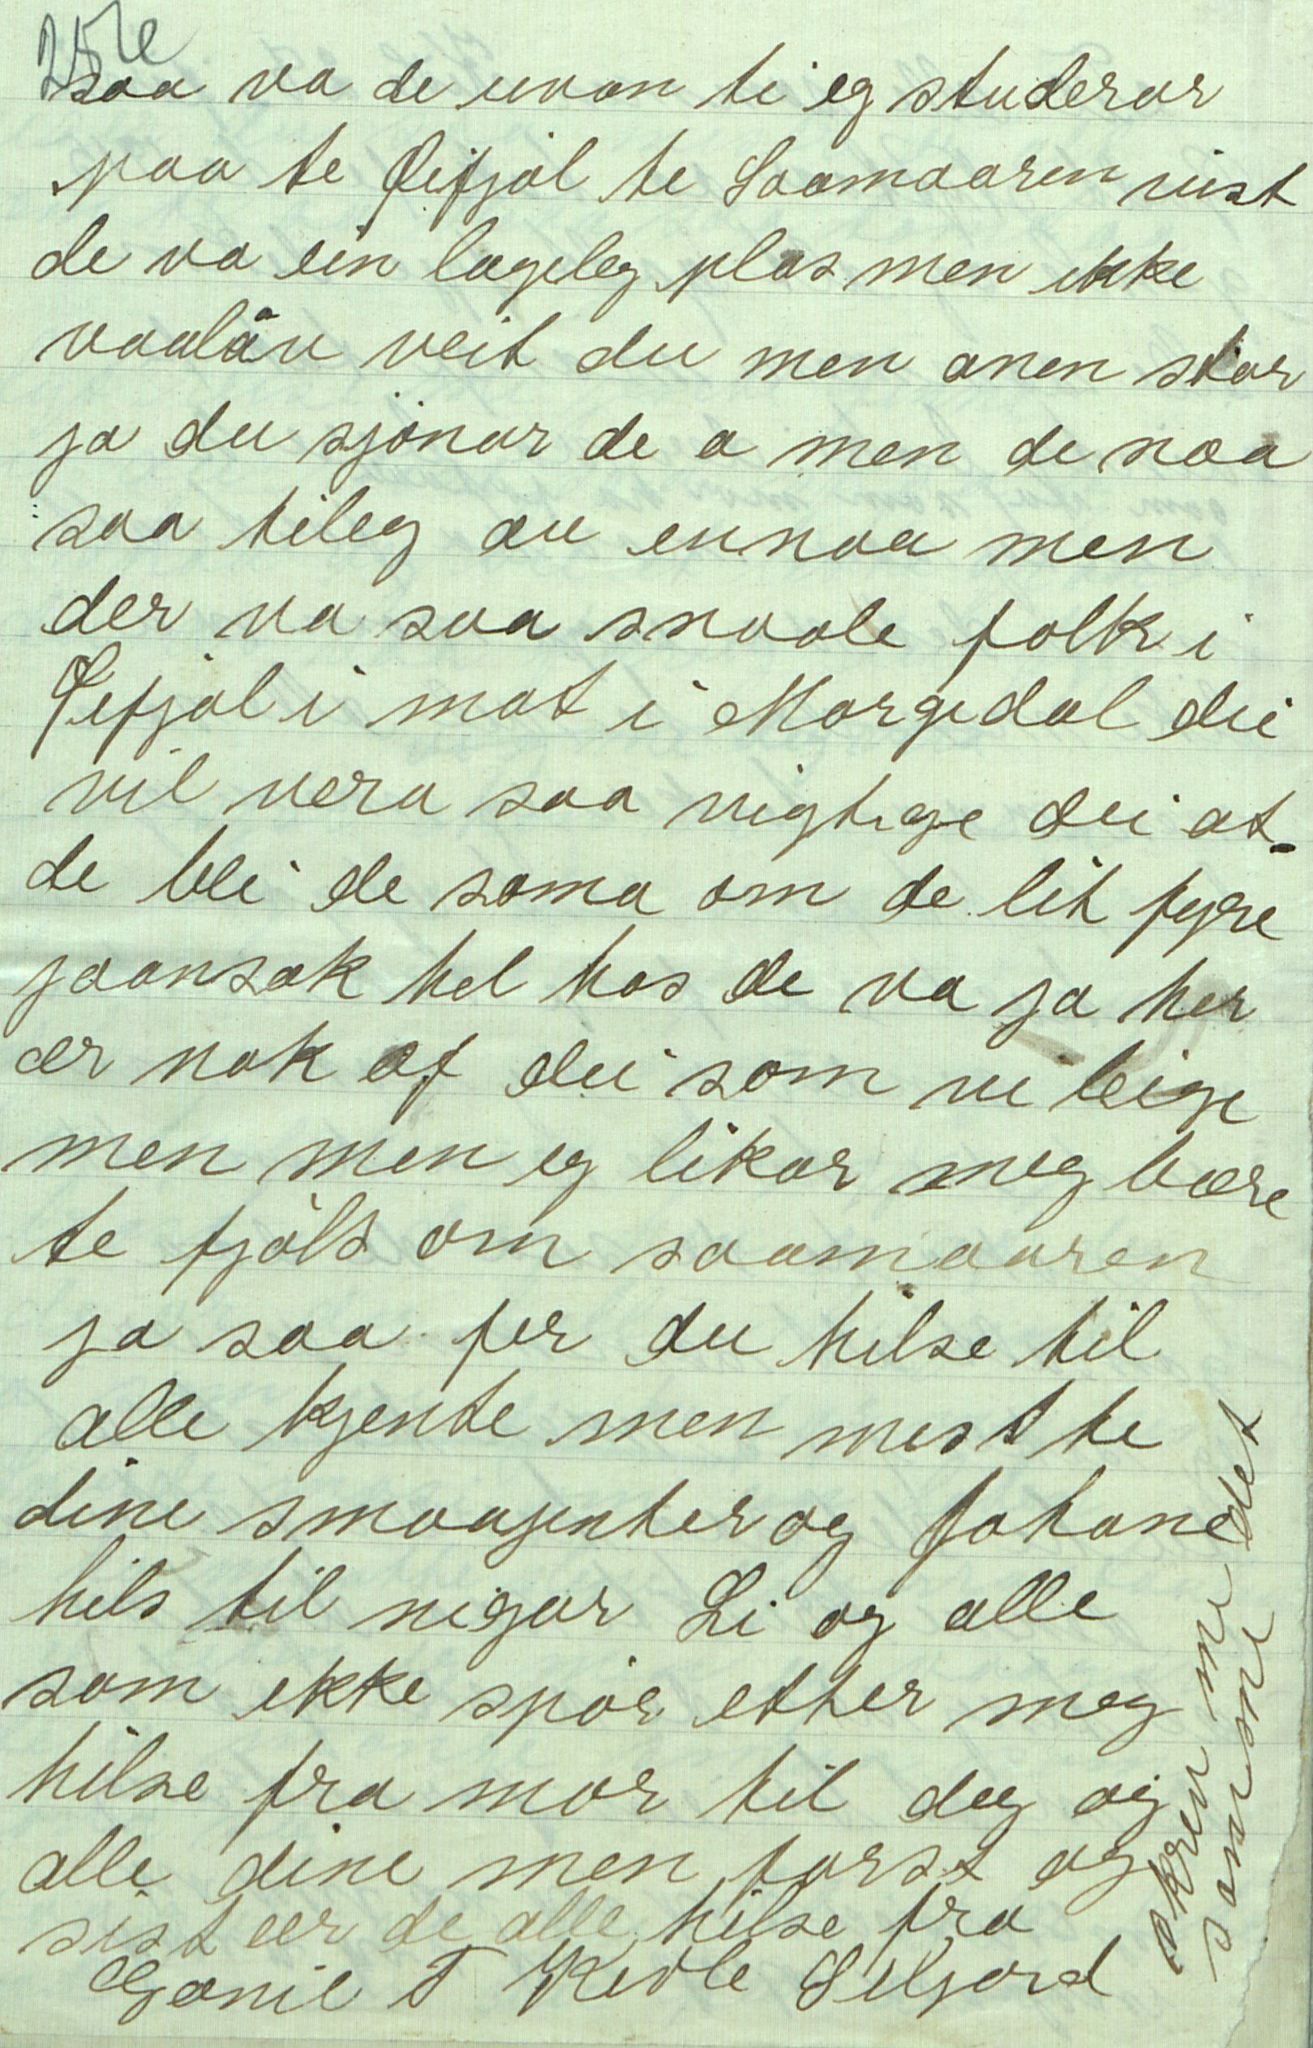 25 e
saa va de uvon ti eg studerar
paa te Øifjøl te Saamaaren vist
de va ein lageleg plas men ikke
vaalåu veit du men anen star
ja du sjönar de a men de naa
saa tileg au ennaa men
der va saa snoole folk i
Øifjøl i mot i Morgedal dei
vil vera saa vigtege dei at
de bli de soma om de lit fyre
jaansok hel hos de va ja her
ær nok af dei som vi leige
men men eg likar meg bære
te fjöls om saamaaren
ja saa fer du hilse til
alle kjente men mest te
dine smaajenter og Johane
hils til vigar Li og alle
som ikke spör etter meg
hilse fra mor til deg og
alle dine men forst og
sist ær de alle hilse fra
Gonil T Kivle Seljord
skren me det
somsme